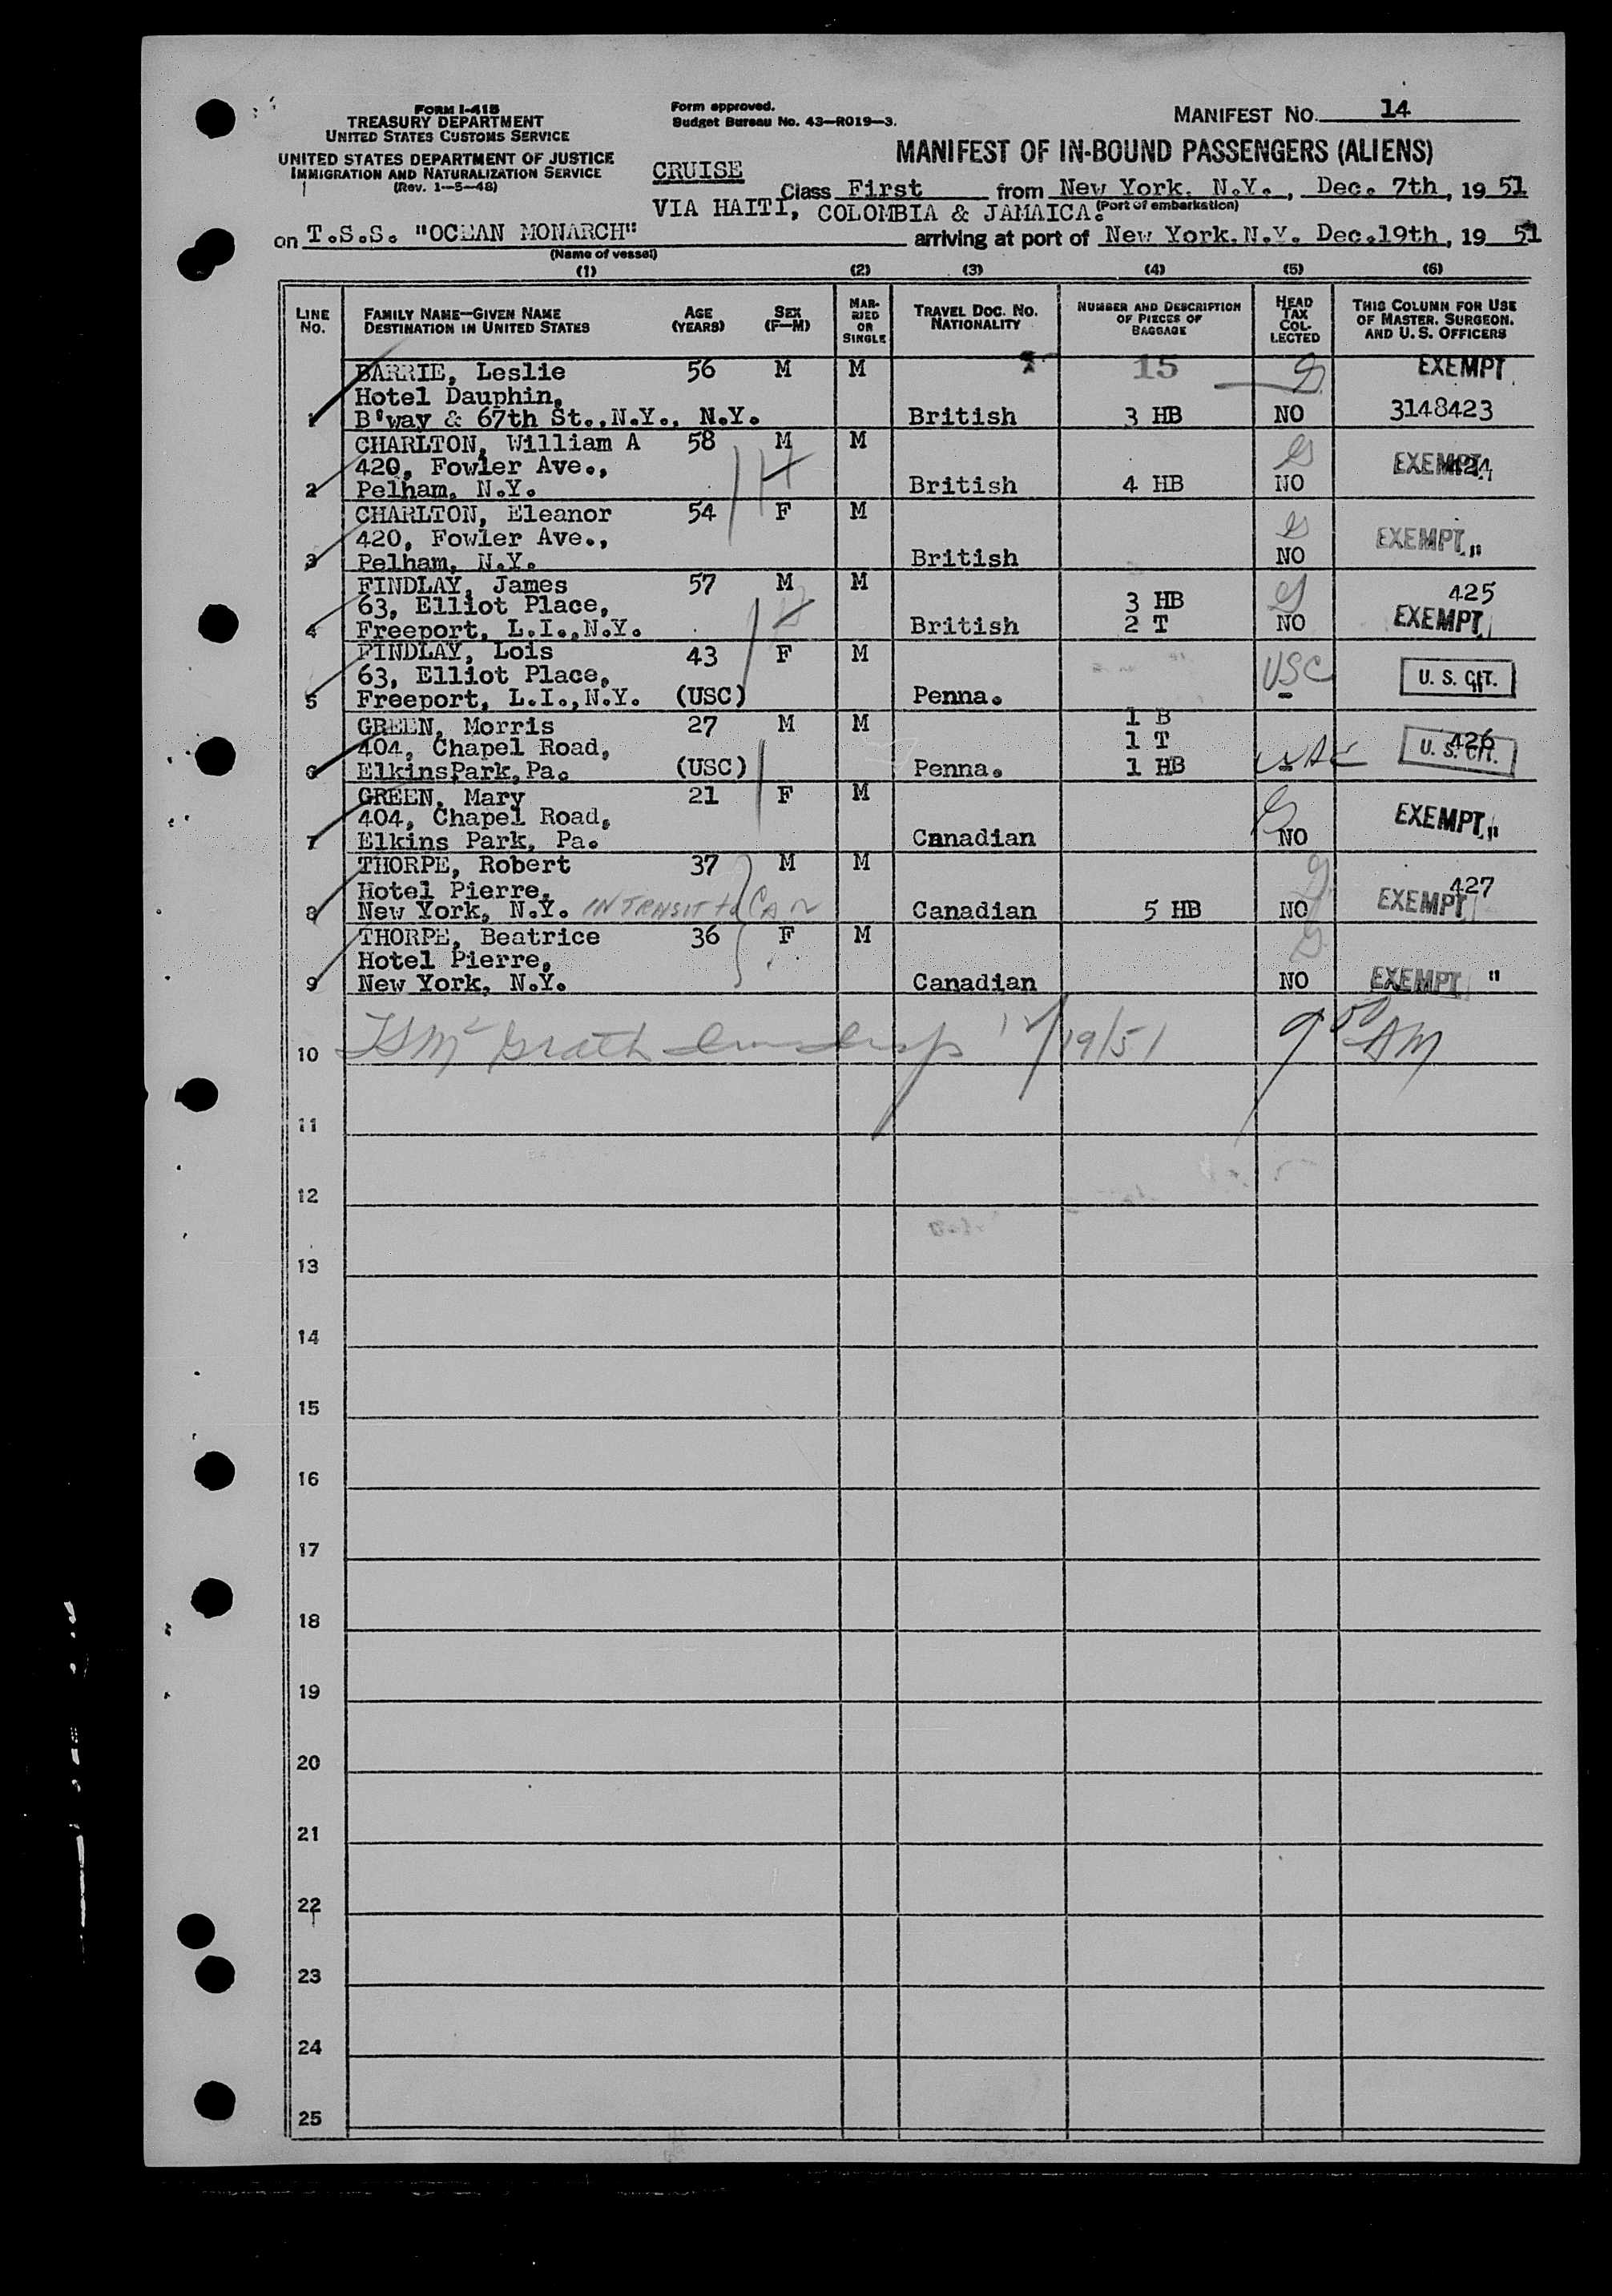 FORM I-415
TREASURY DEPARTMENT
UNITED STATES CUSTOMS SERVICE
UNITED STATES DEPARTMENT OF JUSTICE
IMMIGRATION AND NATURALIZATION SERVICE
(Rev. 1-5-48)
Form approved.
Budget Bureau No. 43-R019-3.
MANIFEST NO. 14
MANIFEST OF IN-BOUND PASSENGERS (ALIENS)
CRUISE
Class First from New York, N.Y., Dec. 7th, 19 51
VIA HAITI, COLOMBIA & JAMAICA. (Port of embarkation)
on T.S.S. "OCEAN MONARCH" arriving at port of New York.N.Y. Dec.19th, 19 51
(Name of vessel)
(1) (2) (3) (4) (5) (6)
LINE NO. FAMILY NAME-GIVEN NAME DESTINATION IN UNITED STATES AGE (YEARS) SEX (F-M) MARRIED OR SINGLE TRAVEL DOC. NO. NATIONALITY NUMBER AND DESCRIPTION OF PIECES OF BAGGAGE HEAD TAX COLLECTED THIS COLUMN FOR USE OF MASTER. SURGEON. AND U.S. OFFICERS
BARRIE, Leslie 56 M M 15 EXEMPT
Hotel Dauphin,
1 B'way & 67th St.,N.Y., N.Y. British 3 HB NO 3148423
CHARLTON, William A 58 M M
420, Fowler Ave., EXEMPT 424
2 Pelham, N.Y. British 4 HB NO
CHARLTON, Eleanor 54 F M
420, Fowler Ave., EXEMPT "
3 Pelham, N.Y. British NO
FINDLAY, James 57 M M 425
63, Elliot Place, 3 HB
4 Freeport, L.I.,N.Y. British 2 T NO EXEMPT
FINDLAY, Lois 43 F M USC
63, Elliot Place, U. S. CIT. "
5 Freeport, L.I.,N.Y. (USC) Penna. -
GREEN, Morris 27 M M 1 B
404, Chapel Road, 1 T 426
6 ElkinsPark,Pa. (USC) Penna. 1 HB - U. S. CIT.
GREEN, Mary 21 F M
404, Chapel Road, EXEMPT "
7 Elkins Park, Pa. Canadian NO
THORPE, Robert 37 M M
Hotel Pierre, 427
8 New York, N.Y. IN TRANSIT to CAN Canadian 5 HB NO EXEMPT
THORPE, Beatrice 36 F M
Hotel Pierre,
9 New York, N.Y. Canadian NO EXEMPT "
10 12/19/51 9 50 AM
11
12
13
14
15
16
17
18
19
20
21
22
23
24
25